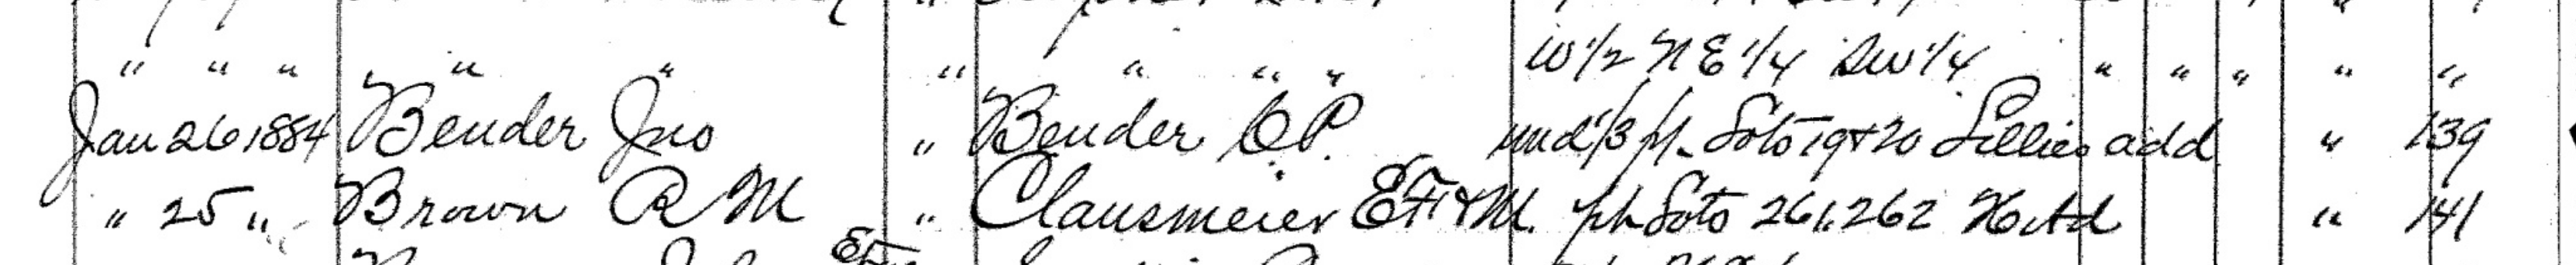 " " " " " " " " " W 1/2 N E 1/4 SW 1/4 " " " " "
Jan 26 1884 Bender Jno " Bender O.P. und 1/3 pt. Lots 19 + 20 Lillies add " 139
" 25 " Brown R M " Clausmeier E F & M. pt Lots 261.262 H Ad " 141